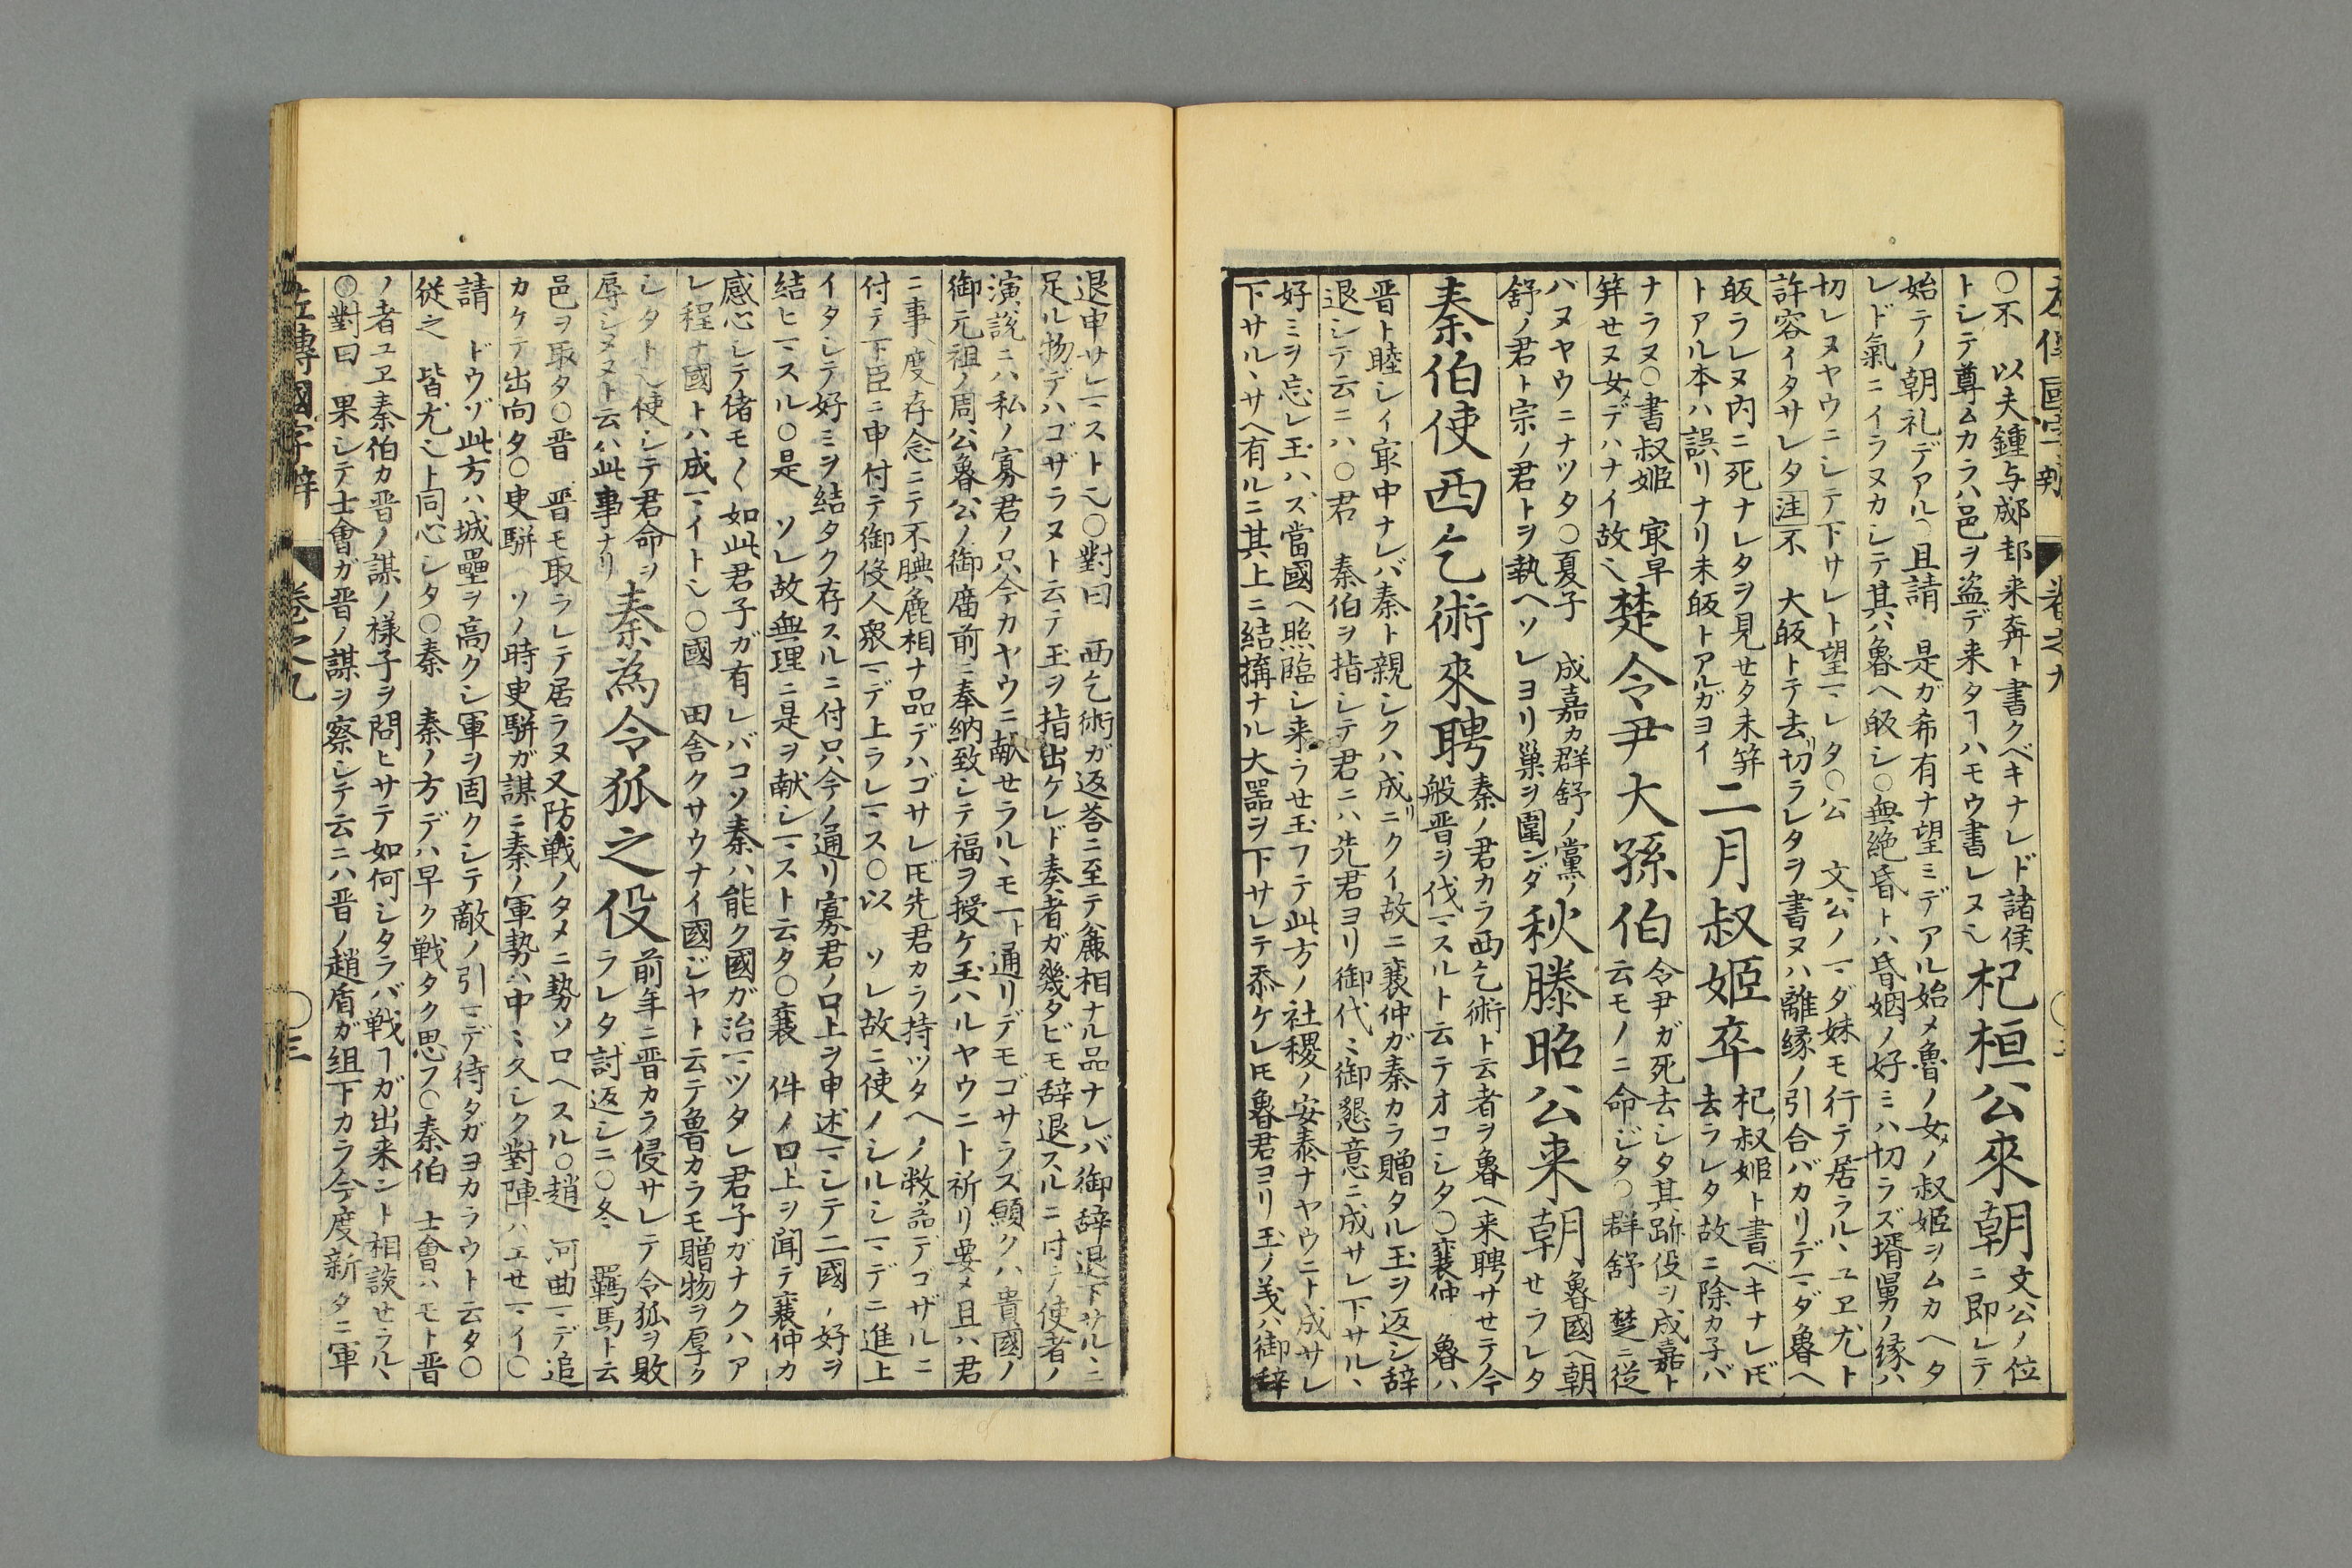 左傳國字辯 巻之九 〇二
〇不 以夫鍾与郕邽来奔ト書クベキナレド諸侯
トシテ尊ムカラハ邑ヲ盗デ来タヿハモウ書レヌ也
杞桓公來朝
文公ノ位
ニ即レテ
始テノ朝礼デアル〇且請 是ガ希有ナ望ミデアル始メ魯ノ女ノ叔姫ヲムカヘタ
レド氣ニイラヌカシテ其ハ魯ヘ皈シ〇無絶昏トハ昏姻ノ好ミハ切ラズ壻舅ノ縁ハ
切レヌヤウニシテ下サレト望マレタ〇公 文公ノマダ妹モ行テ居ラルヽユヱ尤ト
許容イタサレタ注不 大皈トテ去切ラレタヲ書ヌハ離縁ノ引合バカリデマダ魯ヘ
皈ラレヌ内ニ死ナレタヲ見セタ未笄
トアル本ハ誤リナリ未皈トアルガヨイ
二月叔姬卒
杞叔姫ト書ベキナレ𪜈
去ラレタ故ニ除カ子バ
ナラヌ〇書叔姫 㝡早
笄せヌ女デハナイ故也
楚令尹大孫伯
令尹ガ死去シタ其跡役ヲ成嘉ト
云モノニ命ジタ〇群舒 楚ニ従
ハヌヤウニナツタ〇夏子 成嘉カ群舒ノ黨ノ
舒ノ君ト宗ノ君トヲ執ヘソレヨリ巣ヲ圍ンダ
秋滕昭公来朝
魯國ヘ朝
せラレタ
秦伯使西乞術來聘
秦ノ君カラ西乞術ト云者ヲ魯ヘ来聘サせテ今
般晋ヲ伐マスルト云テオコシタ〇襄仲 魯ハ
晋ト睦シイ㝡中ナレバ秦ト親シクハ成リニクイ故ニ襄仲ガ秦カラ贈タル玉ヲ返シ辞
退シテ云ニハ〇君 秦伯ヲ指シテ君ニハ先君ヨリ御代々御懇意ニ成サレ下サルヽ
好ミヲ忘レ玉ハズ當國ヘ照臨シ来ラせ玉フテ此方ノ社稷ノ安泰ナヤウニト成サレ
下サルヽサヘ有ルニ其上ニ結搆ナル大器ヲ下サレテ忝ケレ𪜈魯君ヨリ玉ノ義ハ御辞
退申サレマスト也〇對曰 西乞術ガ返荅ニ至テ麁相ナル品ナレバ御辞退下サルヽニ
足ル物デハゴザラヌト云テ玉ヲ指出ケレド奏者ガ幾タビモ辞退スルニ付テ使者ノ
演説ニハ私ノ寡君ノ只今カヤウニ献せラルヽモ一ト通リデモゴサラズ願クハ貴國ノ
御元祖ノ周公魯公ノ御庿前ニ奉納致シテ福ヲ授ケ玉ハルヤウニト祈リ要メ且ハ君
ニ事ル度存念ニテ不腆麁相ナ品デハゴサレ𪜈先君カラ持ツタヘノ敝器デゴザルニ
付テ下臣ニ申付テ御役人衆マデ上ラレマス〇以 ソレ故ニ使ノシルシマデニ進上
イタシテ好ミヲ結タク存スルニ付只今ノ通リ寡君ノ口上ヲ申述マシテ二國ノ好ヲ
結ヒマスル〇是 ソレ故無理ニ是ヲ献シマスト云タ〇襄 件ノ口上ヲ聞テ襄仲カ
感心シテ偖モ〱如此君子ガ有レバコソ秦ハ能ク國ガ治マツタレ君子ガナクハア
レ程ナ國トハ成マイト也〇國 田舎クサウナイ國ジヤト云テ魯カラモ贈物ヲ厚ク
シタト也使シテ君命ヲ
辱シメヌト云ハ此事ナリ
秦為令狐之役
前年ニ晋カラ侵サレテ令狐ヲ敗
ラレタ討返シニ〇冬 羈馬ト云
邑ヲ取タ〇晋 晋モ取ラレテ居ラヌ又防戦ノタメニ勢ソロヘスル〇趙 河曲マデ追
カケテ出向タ〇臾駢 ソノ時臾駢ガ謀ニ秦ノ軍勢ハ中々久シク對陣ハエせマイ〇
請 ドウゾ此方ハ城壘ヲ高クシ軍ヲ固クシテ敵ノ引マデ待タガヨカラウト云タ〇
從之 皆尤也ト同心シタ〇秦 秦ノ方デハ早ク戦タク思フ〇秦伯 士會ハモト晋
ノ者ユヱ秦伯カ晋ノ謀ノ様子ヲ問ヒサテ如何シタラバ戦ヿガ出来ント相談せラルヽ
〇對曰 果シテ士會ガ晋ノ謀ヲ察シテ云ニハ晋ノ趙盾ガ組下カラ今度新タニ軍
左傳國字辯 巻之九 〇三